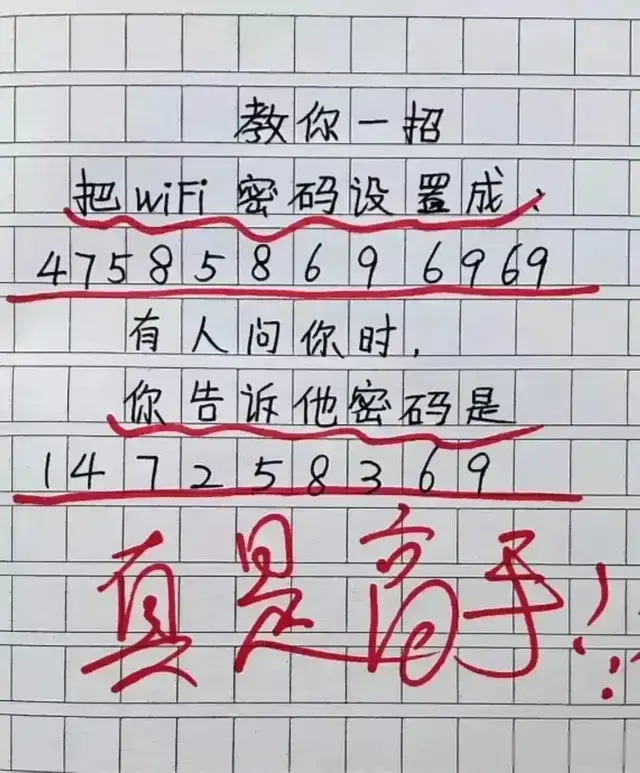 教你一招
把WiFi密码设置成:
475858696969
有人问你时,
你告诉他密码是
147258369
真是高手!